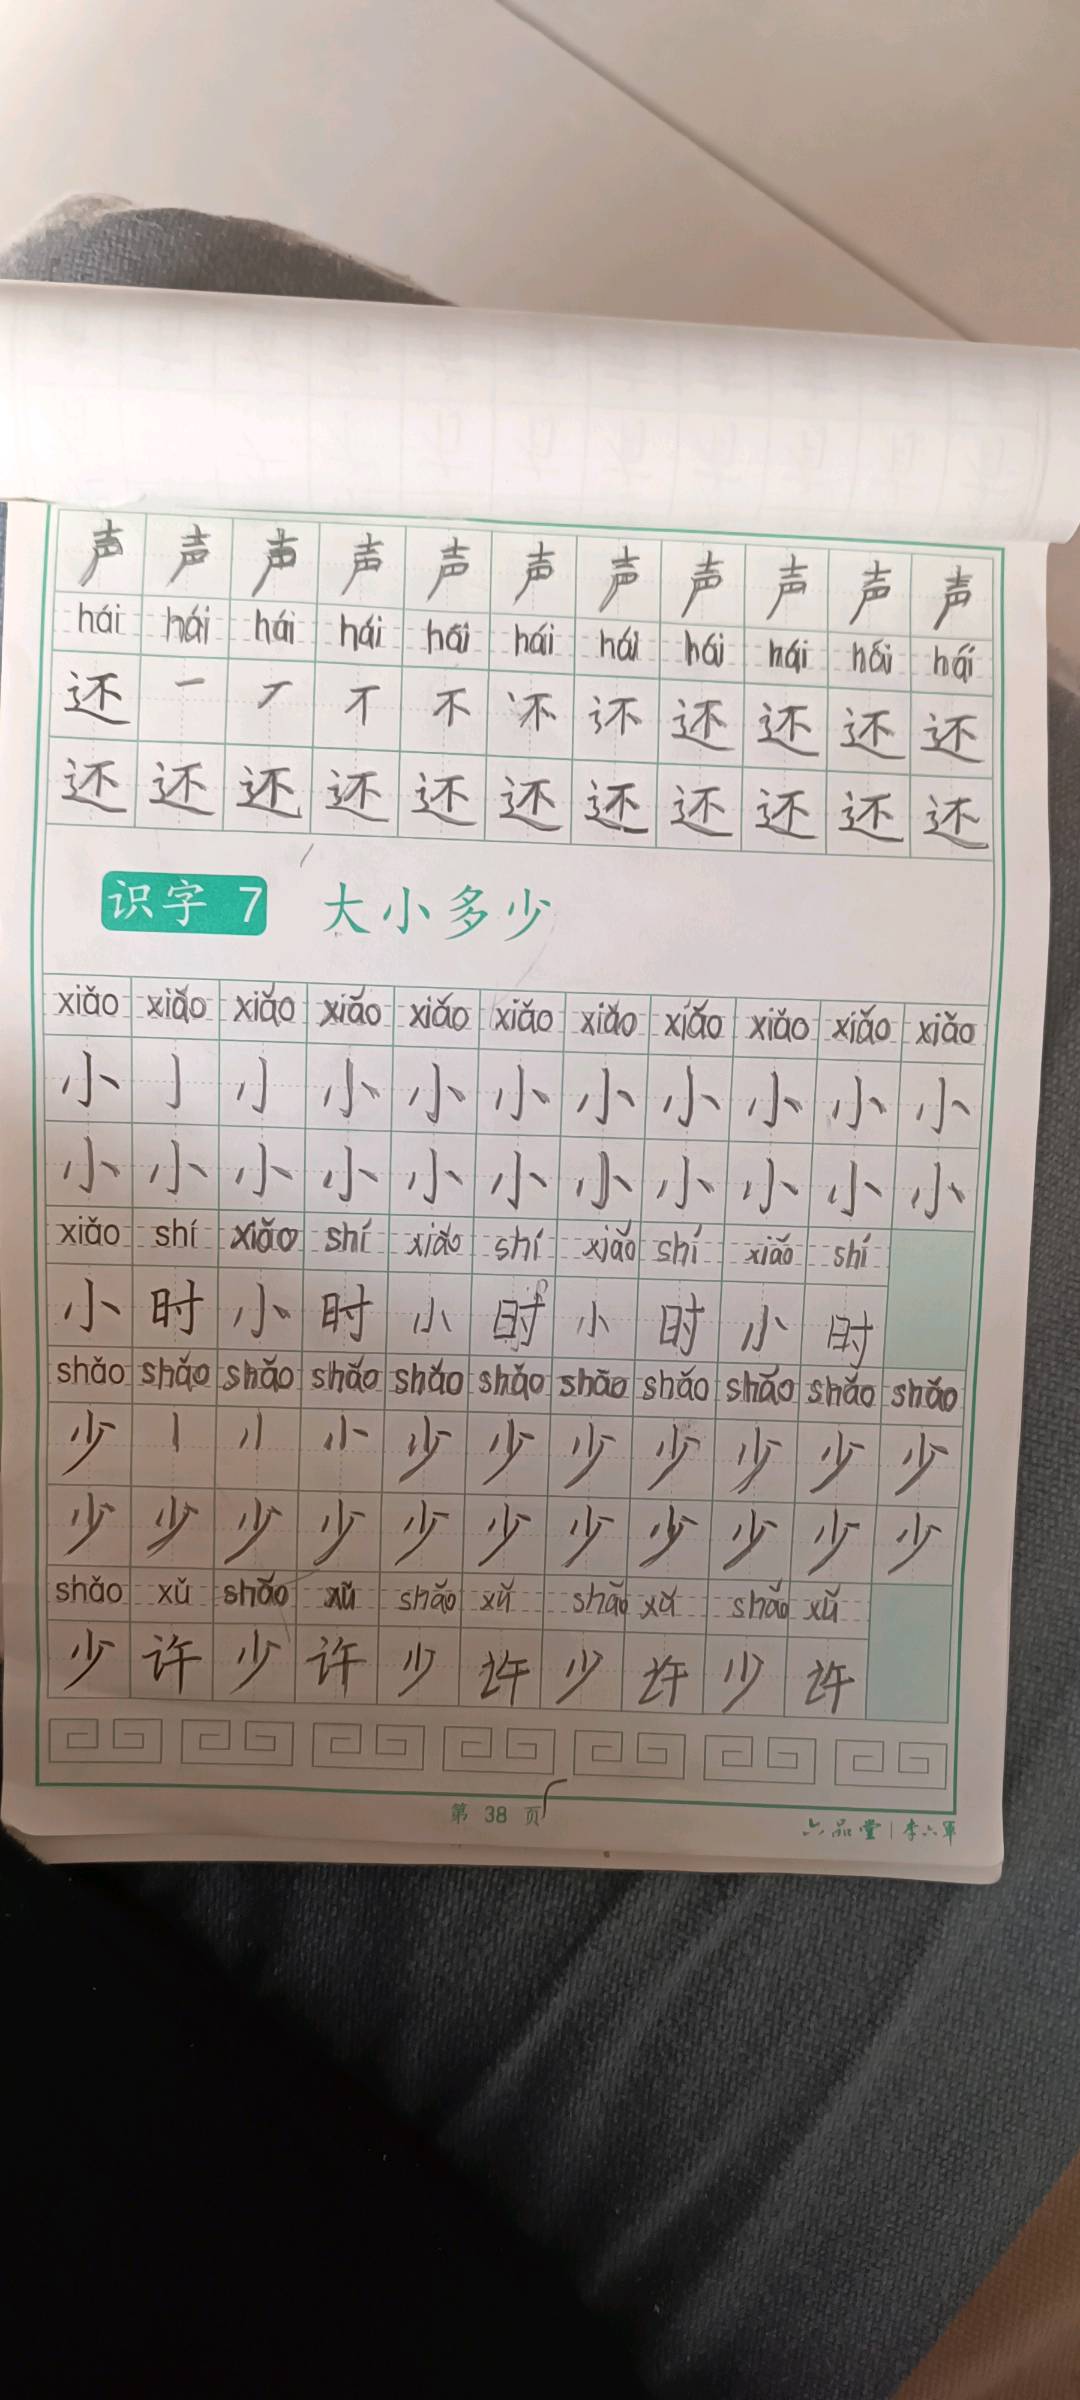 声 声 声 声 声 声 声 声 声 声 声
hái hái hái hái hái hái hái hái hái hái hái
还 一 丆 不 不 还 还 还 还 还
还 还 还 还 还 还 还 还 还 还 还
识字 7 大小多少
xiǎo xiǎo xiǎo xiǎo xiǎo xiǎo xiǎo xiǎo xiǎo xiǎo xiǎo
小 亅 小 小 小 小 小 小 小 小
小 小 小 小 小 小 小 小 小 小 小
xiǎo shí xiǎo shí xiǎo shí xiǎo shí xiǎo shí
小 时 小 时 小 时 小 时 小 时
shǎo shǎo shǎo shǎo shǎo shǎo shǎo shǎo shǎo shǎo shǎo
少 丨 小 少 少 少 少 少 少 少
少 少 少 少 少 少 少 少 少 少 少
shǎo xǔ shǎo xǔ shǎo xǔ shǎo xǔ shǎo xǔ
少 许 少 许 少 许 少 许 少 许
第 38 页
六品堂|李六军